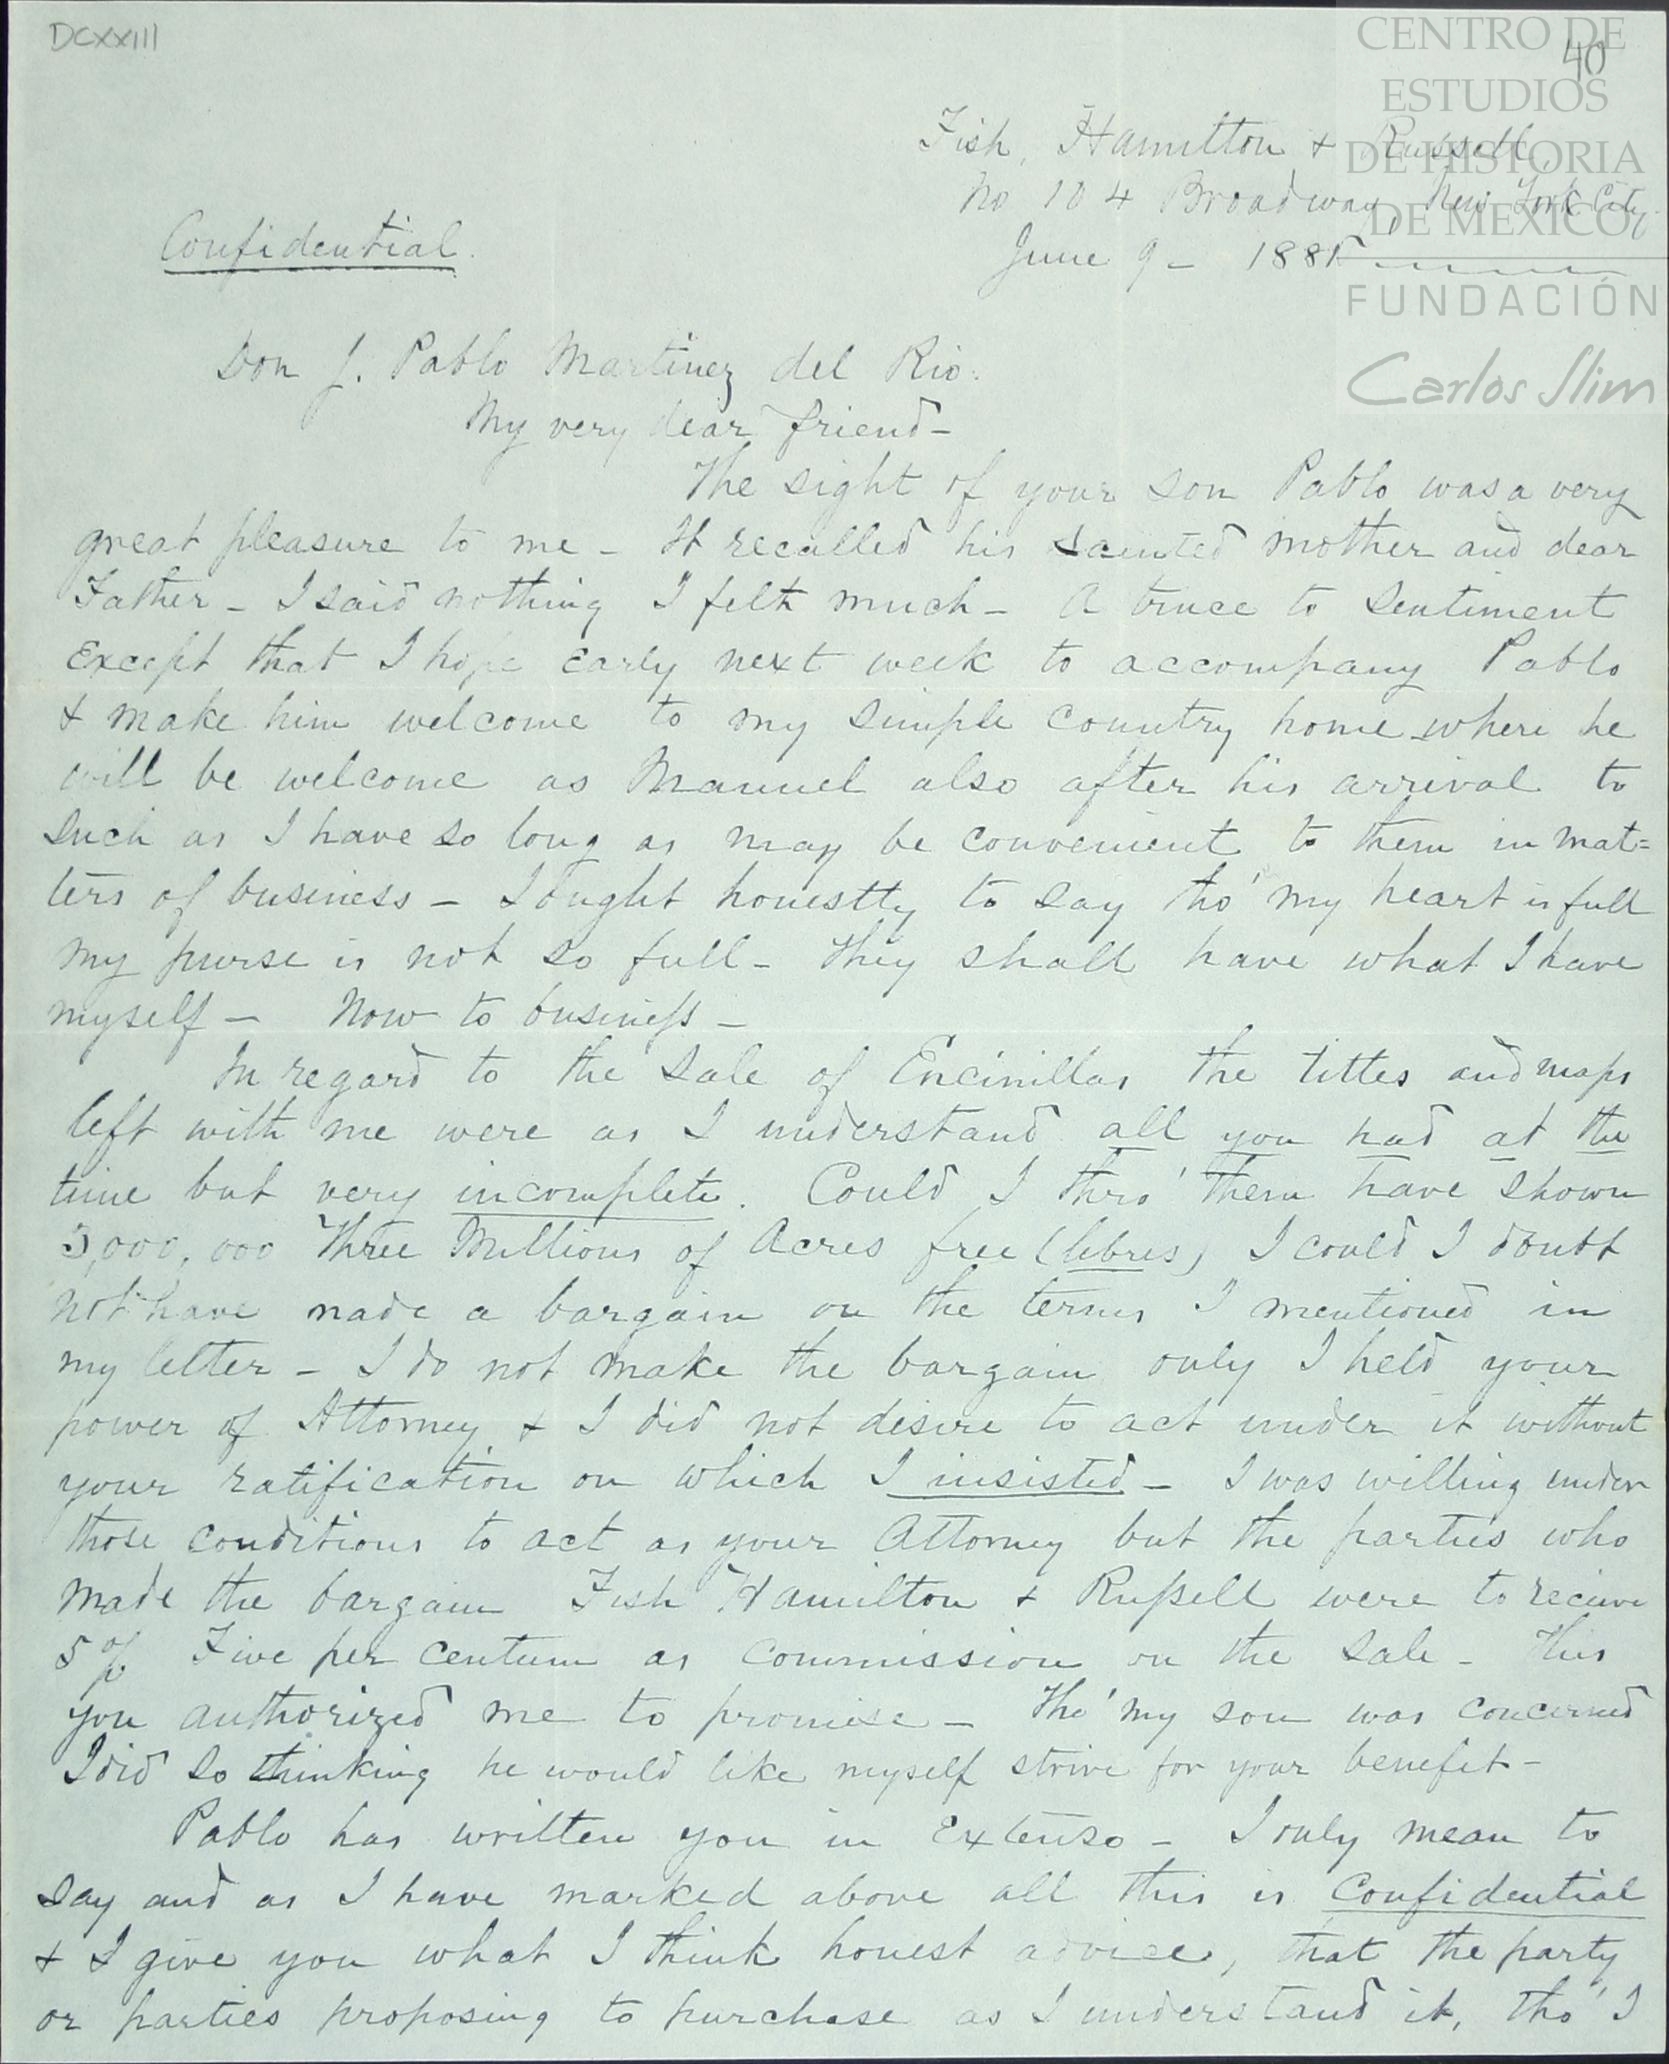 DCXXIII
40
CENTRO DE
ESTUDIOS
DE HISTORIA
DE MEXICO
FUNDACIÓN
Carlos Slim
Fish, Hamilton + Russell,
No 104 Broadway, New York City
June 9 - 1881
Confidential.
Don J. Pablo Martinez del Rio.
My very dear friend -
The sight of your son Pablo was a very
great pleasure to me - It recalled his sainted mother and dear
Father - I said nothing I felt much - A truce to sentiment
Except that I hope Early next week to accompany Pablo
+ make him welcome to my simple country home where he
will be welcome as Manuel also after his arrival to
such as I have so long as may be convenient to them in mat=
ters of business - I ought honestly to say tho' my heart is full
my purse is not so full - They shall have what I have
myself - Now to business -
In regard to the sale of Encinillas the titles and maps
left with me were as I understand all you had at the
time but very incomplete. Could I thro' them have shown
3,000,000 Three Millions of Acres free (libres) I could I doubt
not have made a bargain on the terms I mentioned in
my letter - I do not make the bargain only I held your
power of Attorney + I did not desire to act under it without
your ratification on which I insisted - I was willing under
those conditions to act as your Attorney but the parties who
made the bargain Fish Hamilton + Russell were to receive
5 % Five per centum as commission on the sale - This
you authorized me to promise - Tho' my son was concerned
I did so thinking he would like myself strive for your benefit -
Pablo has written you in Extenso - I only mean to
say and as I have marked above all this is Confidential
+ I give you what I think honest advice, that the party
or parties proposing to purchase as I understand it, tho' I